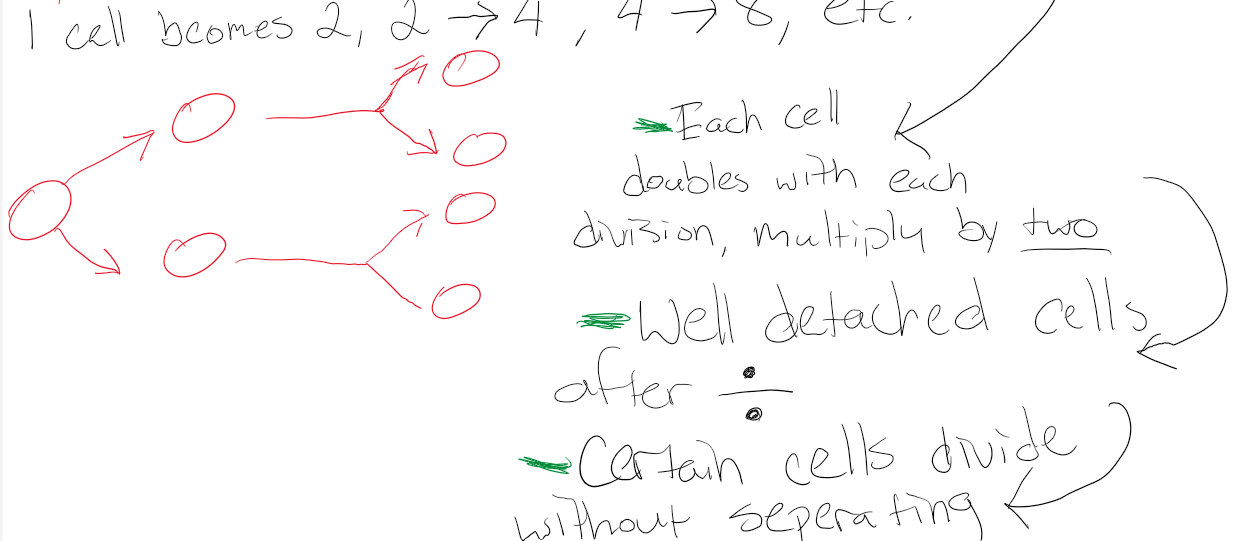 1 cell bcomes 2, 2 → 4, 4 → 8, etc.
- Each cell
doubles with each
division, multiply by two
- Well detached cells
after ÷
- Certain cells divide
without seperating